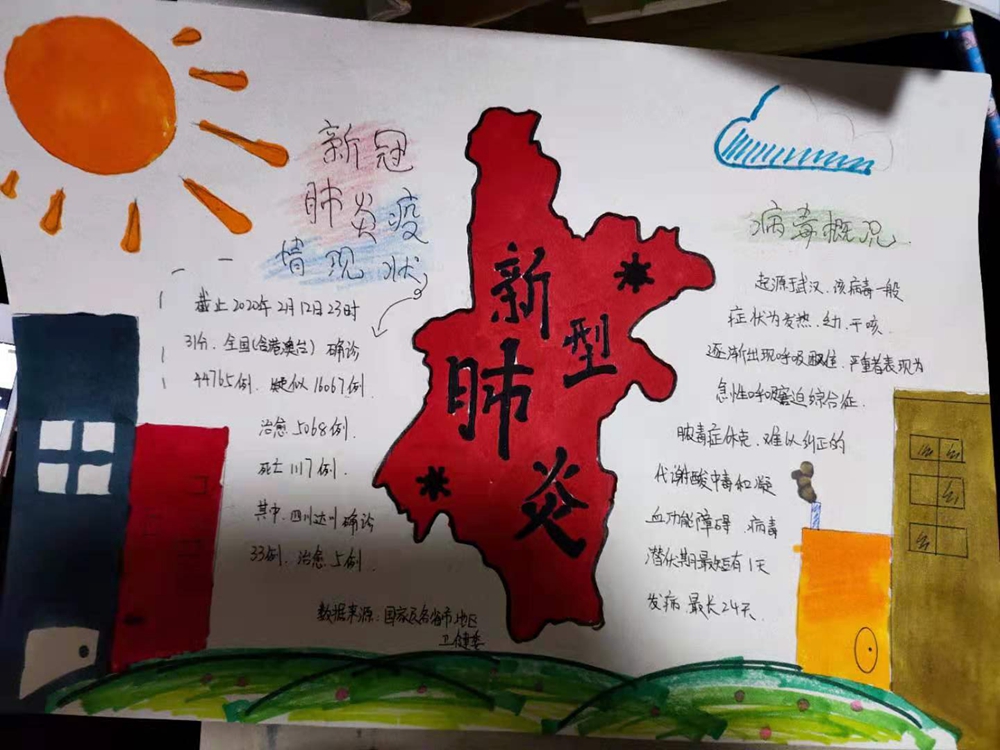 新冠
肺炎疫
情现状
截止2020年2月12日23时
31分、全国(含港澳台)确诊
44765例、疑似16067例.
治愈5068例.
死亡1117例.
其中.四川达川确诊
33例.治愈5例.
数据来源:国家及各省市地区
卫健委
新
型
肺
炎
病毒概况
起源于武汉.该病毒一般
症状为发热、乏力、干咳.
逐渐出现呼吸困难.严重者表现为
急性呼吸窘迫综合征.
脓毒症休克.难以纠正的
代谢酸中毒和凝
血功能障碍.病毒
潜伏期最短有1天
发病.最长24天.